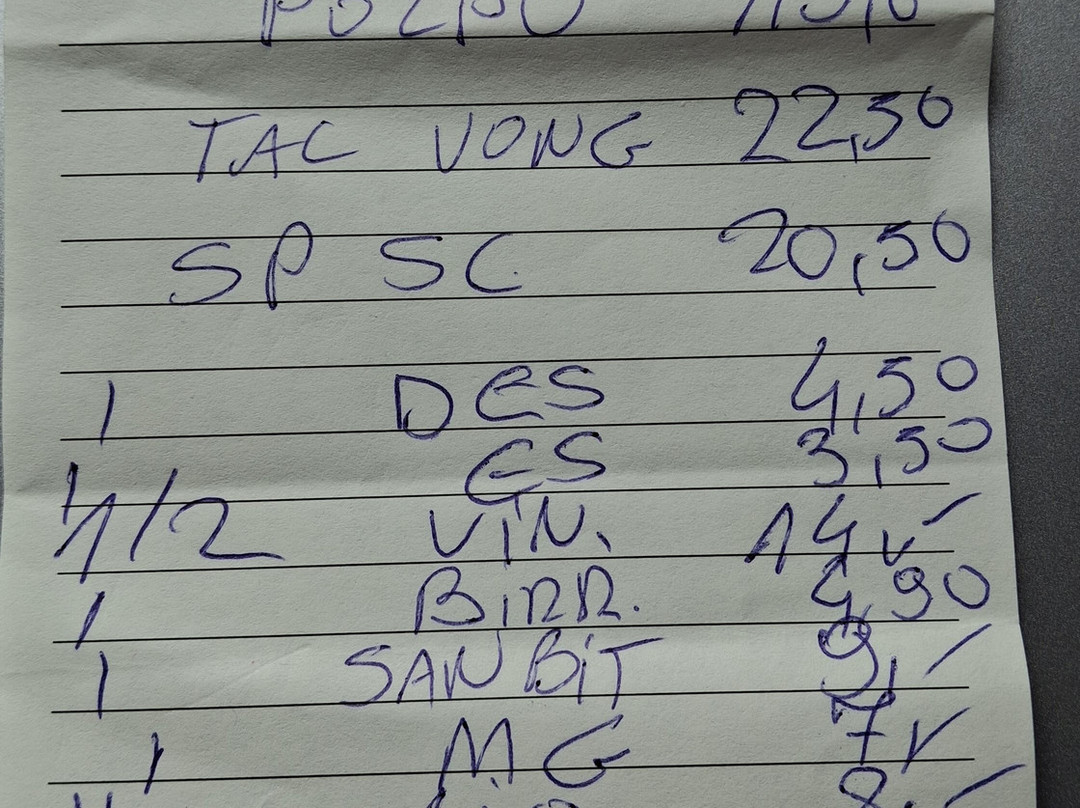 TAC VONG 22,50
SP SC 20,50
1 DES 4,50
1 ES 3,50
1/2 VIN. 14,-
1 BIRR. 4,90
1 SAN BIT 9,-
1 MG 7,-